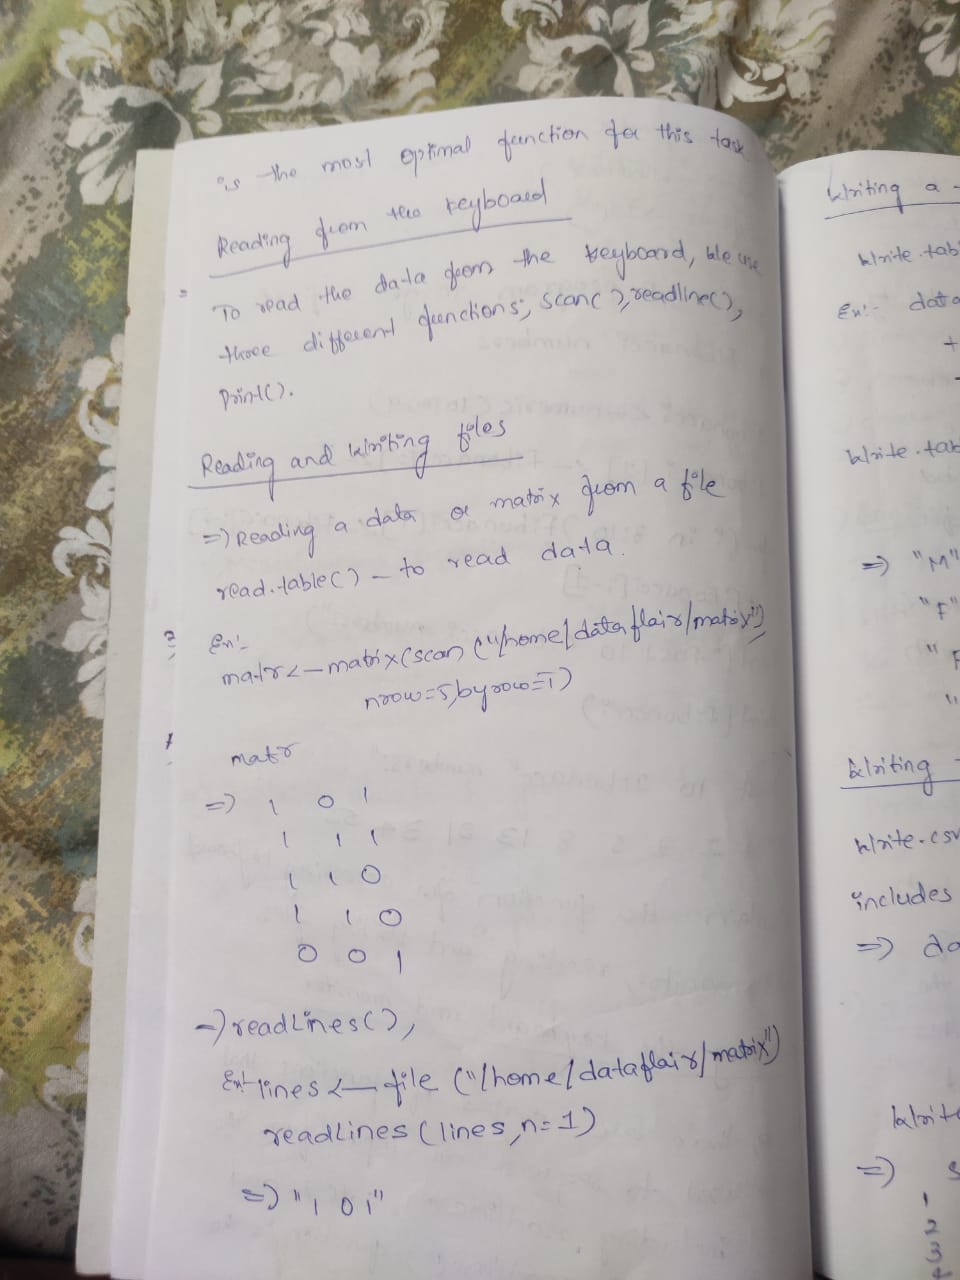 is the most optimal function for this task
Reading from the keyboard
To read the data from the keyboard, we use
three different functions; scan( ), readline(),
Print().
Reading and Writing files
=> Reading a data or matrix from a file
read.table() - to read data.
Ex:-
matr <- matrix(scan ("/home/dataflair/matrix")
nrow=5, byrow=T)
matr
=> 1 0 1
1 1 1
1 1 0
1 1 0
0 0 1
=> readLines(),
Ex:- lines <- file ("/home/dataflair/matrix")
readLines (lines, n=1)
=> "1 0 1"
Writing a
Write.tab
Ex:- data
+
Write.tab
=> "M"
"F"
"F
"
Writing
Write.csv
includes
=> da
Write
=> S
1
2
3
4